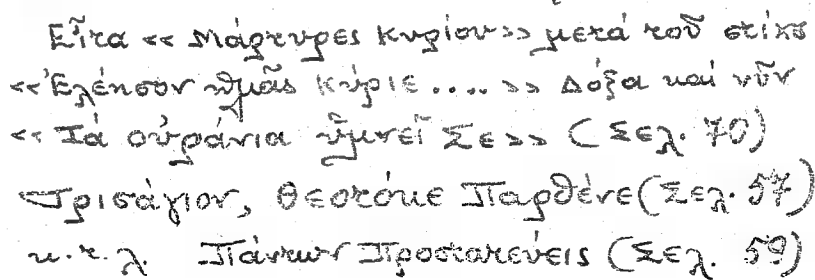 Εἶτα «Μάρτυρες Κυρίου» μετά τοῦ στίχου
«Ἐλέησον ἡμᾶς Κύριε....» Δόξα καί νῦν
«Τά οὐράνια ὑμνεῖ Σε» (Σελ. 70)
Τρισάγιον, Θεοτόκε Παρθένε (Σελ. 57)
κ.τ.λ. Πάντων Προστατεύεις (Σελ. 59)